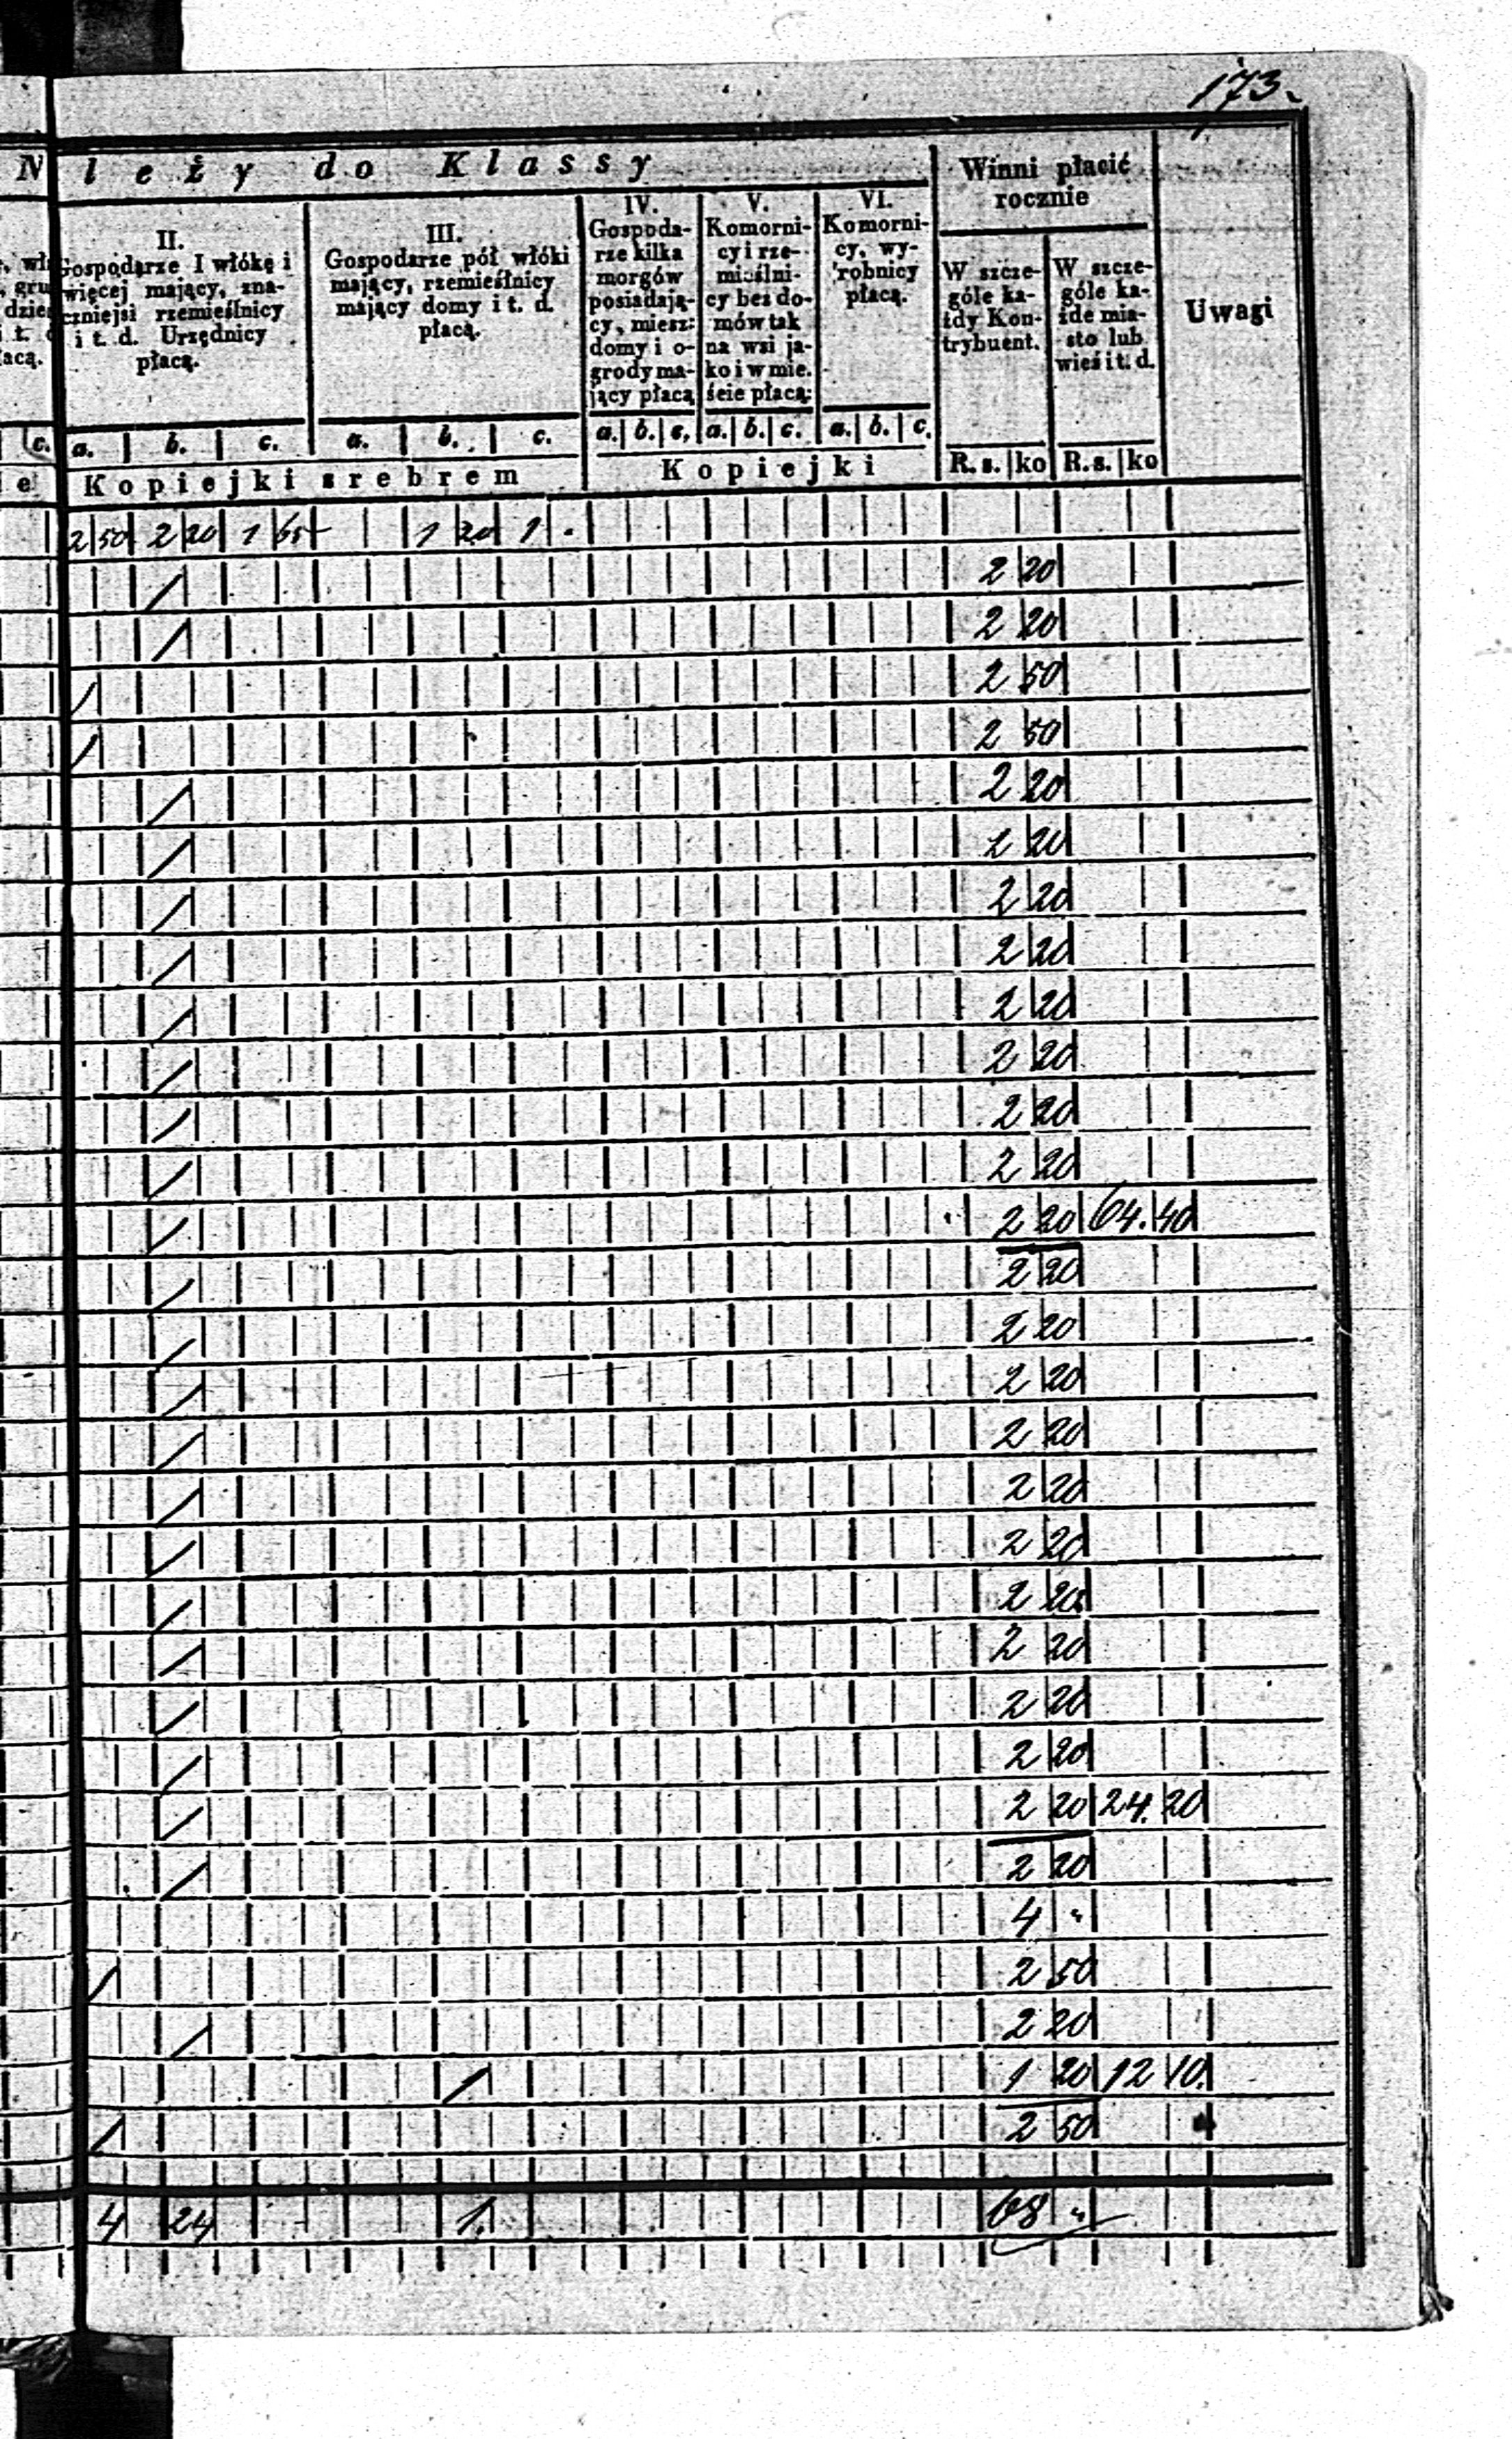 173.
N leży do Klassy
Winni płacić rocznie
II. Gospodarze I włókę i więcej mający, znaczniejsi rzemieślnicy i t. d. Urzędnicy płacą.
III. Gospodarze pół włóki mający, rzemieślnicy mający domy i t. d. płacą.
IV. Gospodarze kilka morgów posiadający, miesz: domy i ogrody mający płacą
V. Komornicy i rzemieślnicy bez domów tak na wsi jako i w mieście płacą:
VI. Komornicy, wyrobnicy płacą.
W szczególe każdy Kontrybuent.
W szczególe każde miasto lub wieś i t. d.
Uwagi
c. a. b. c. a. b. c. a. b. c. a. b. c. a. b. c. R.s. ko R.s. ko
e Kopiejki srebrem Kopiejki
2 50 2 20 1 65 1 20 1 .
/ 2 20
/ 2 20
/ 2 50
/ 2 50
/ 2 20
/ 2 20
/ 2 20
/ 2 20
/ 2 20
/ 2 20
/ 2 20
/ 2 20
/ 2 20 64. 40
/ 2 20
/ 2 20
/ 2 20
/ 2 20
/ 2 20
/ 2 20
/ 2 20
/ 2 20
/ 2 20
/ 2 20
/ 2 20 24. 20
/ 2 20
4 "
/ 2 50
/ 2 20
/ 1 20 12 10.
/ 2 50
4 24 1. 68 "